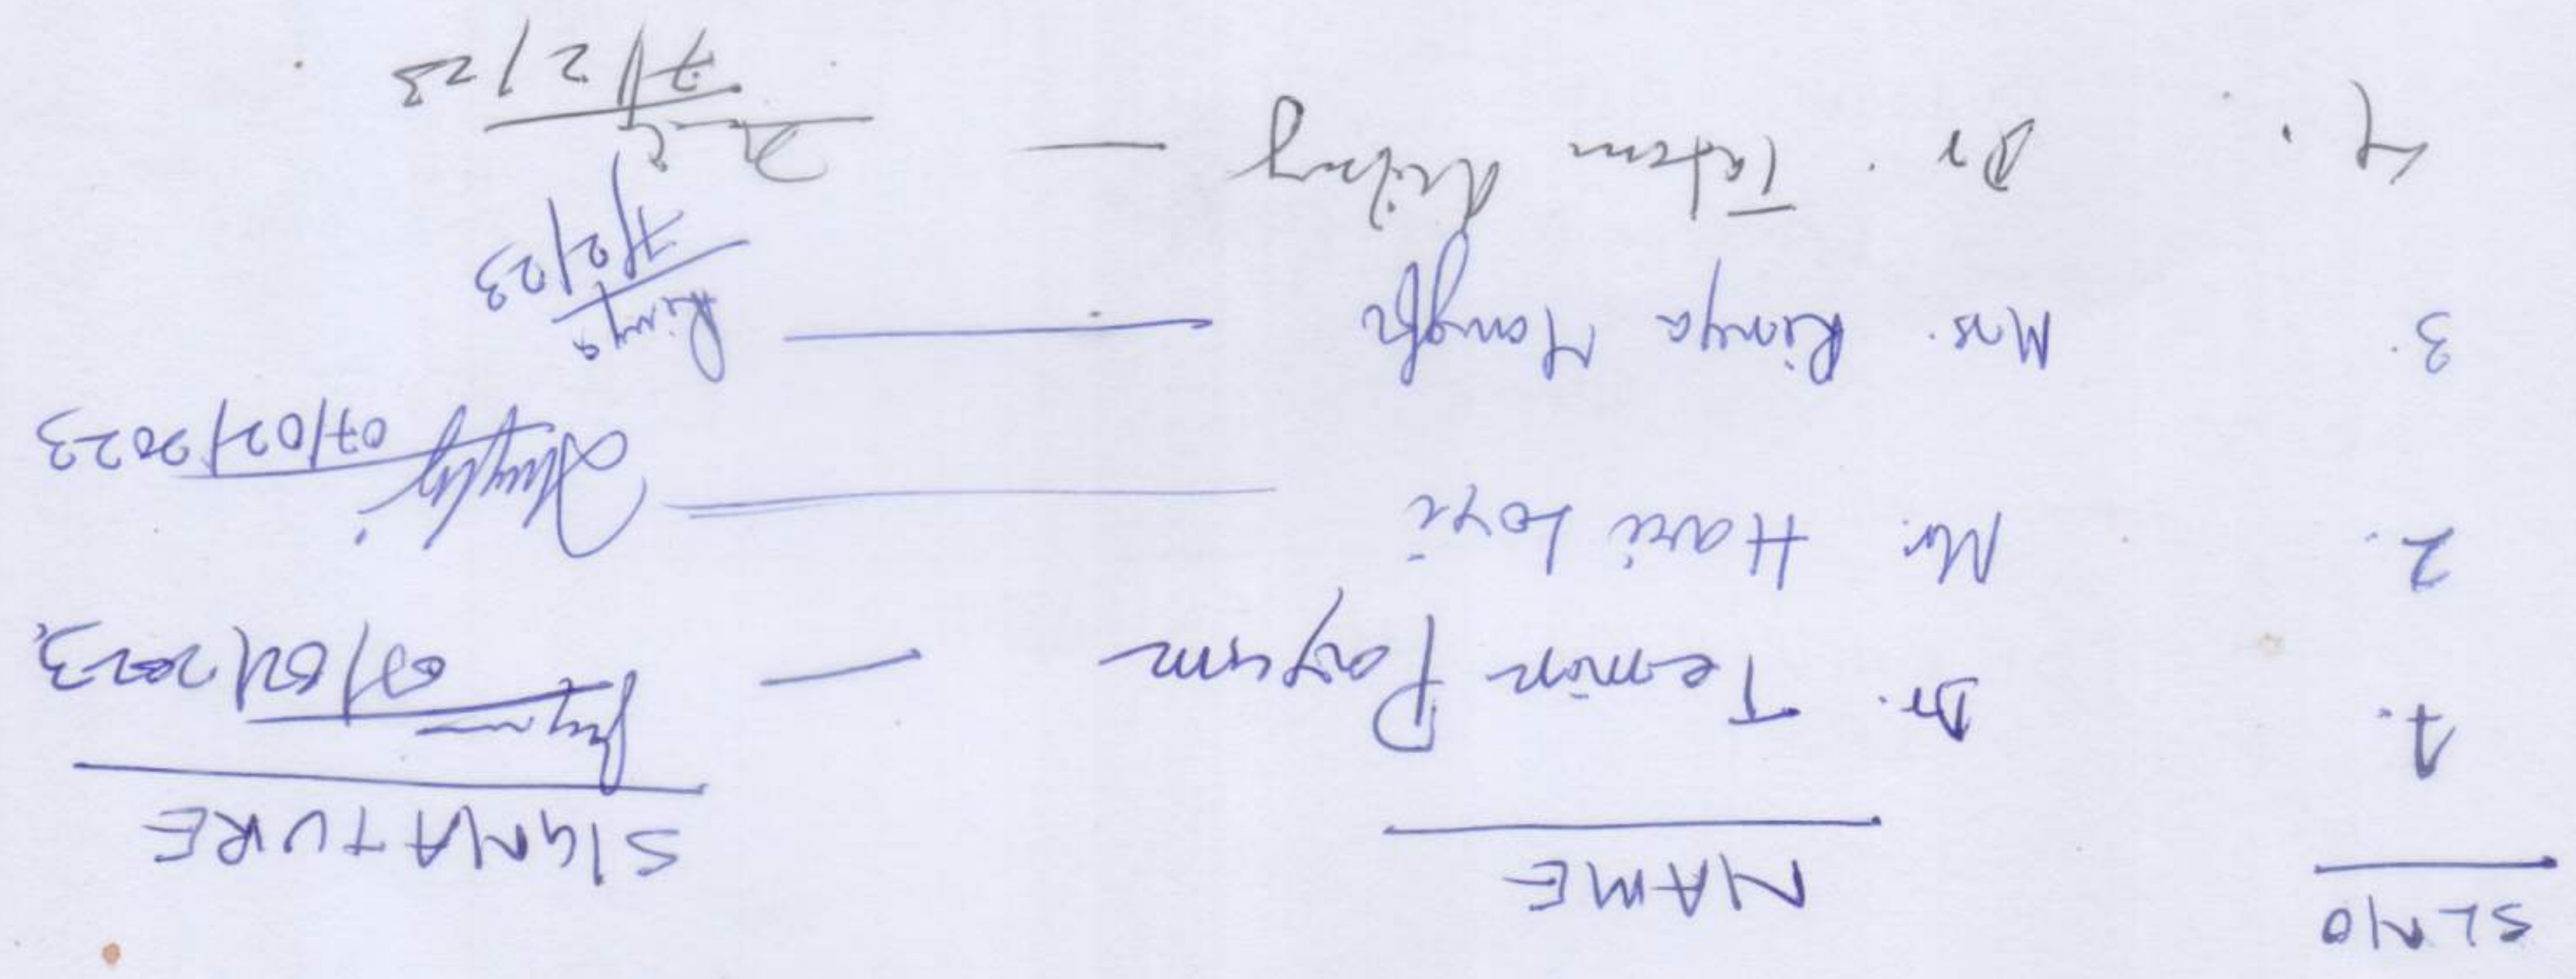 SL NO NAME SIGNATURE
1. Dr. Temin Payum — 07/02/2023
2. Mr. Hari Loyi — 07/02/2023
3. Mrs. Rinya — Rinya 7/2/23
4. Dr. — 7/2/23